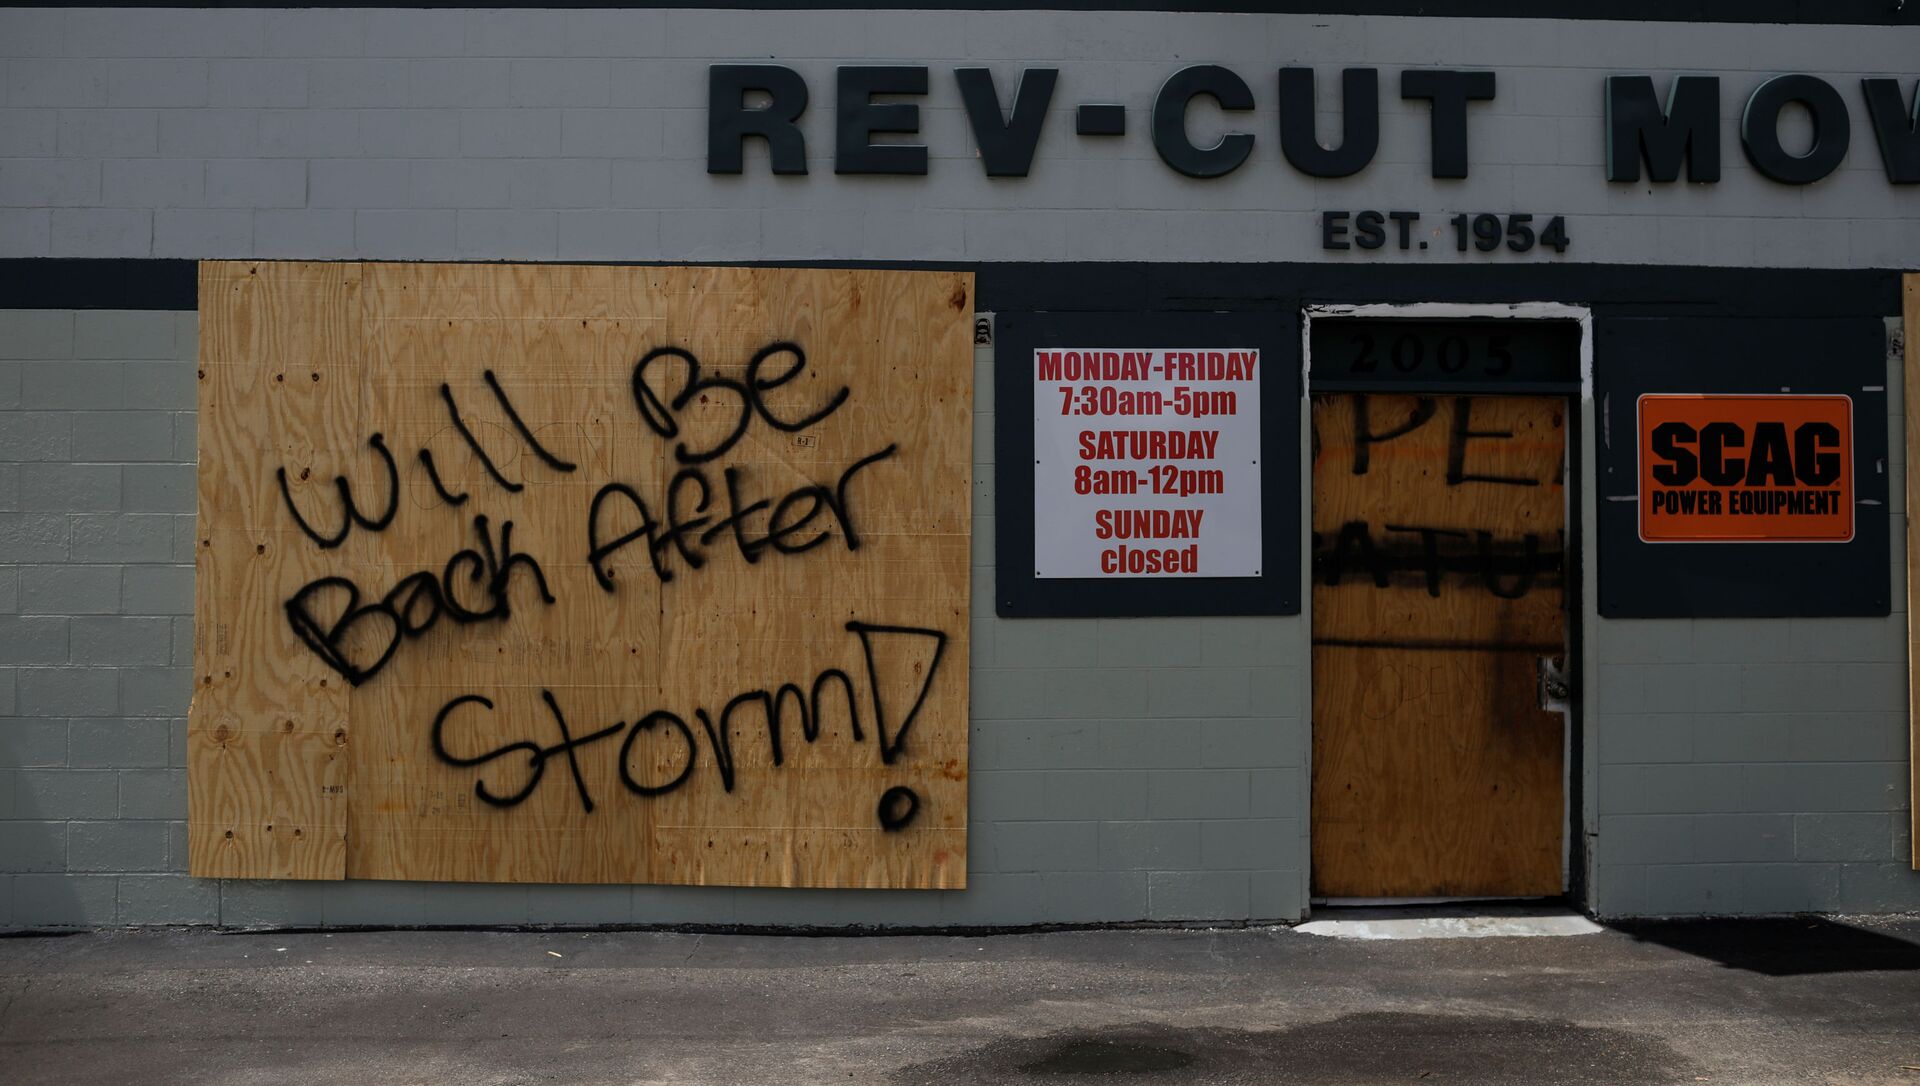 REV-CUT MOW
EST. 1954
Will Be
Back After
Storm!
OPEN
R-1
MONDAY-FRIDAY
7:30am-5pm
SATURDAY
8am-12pm
SUNDAY
closed
2005
OPE
ATU
OPEN
SCAG
POWER EQUIPMENT